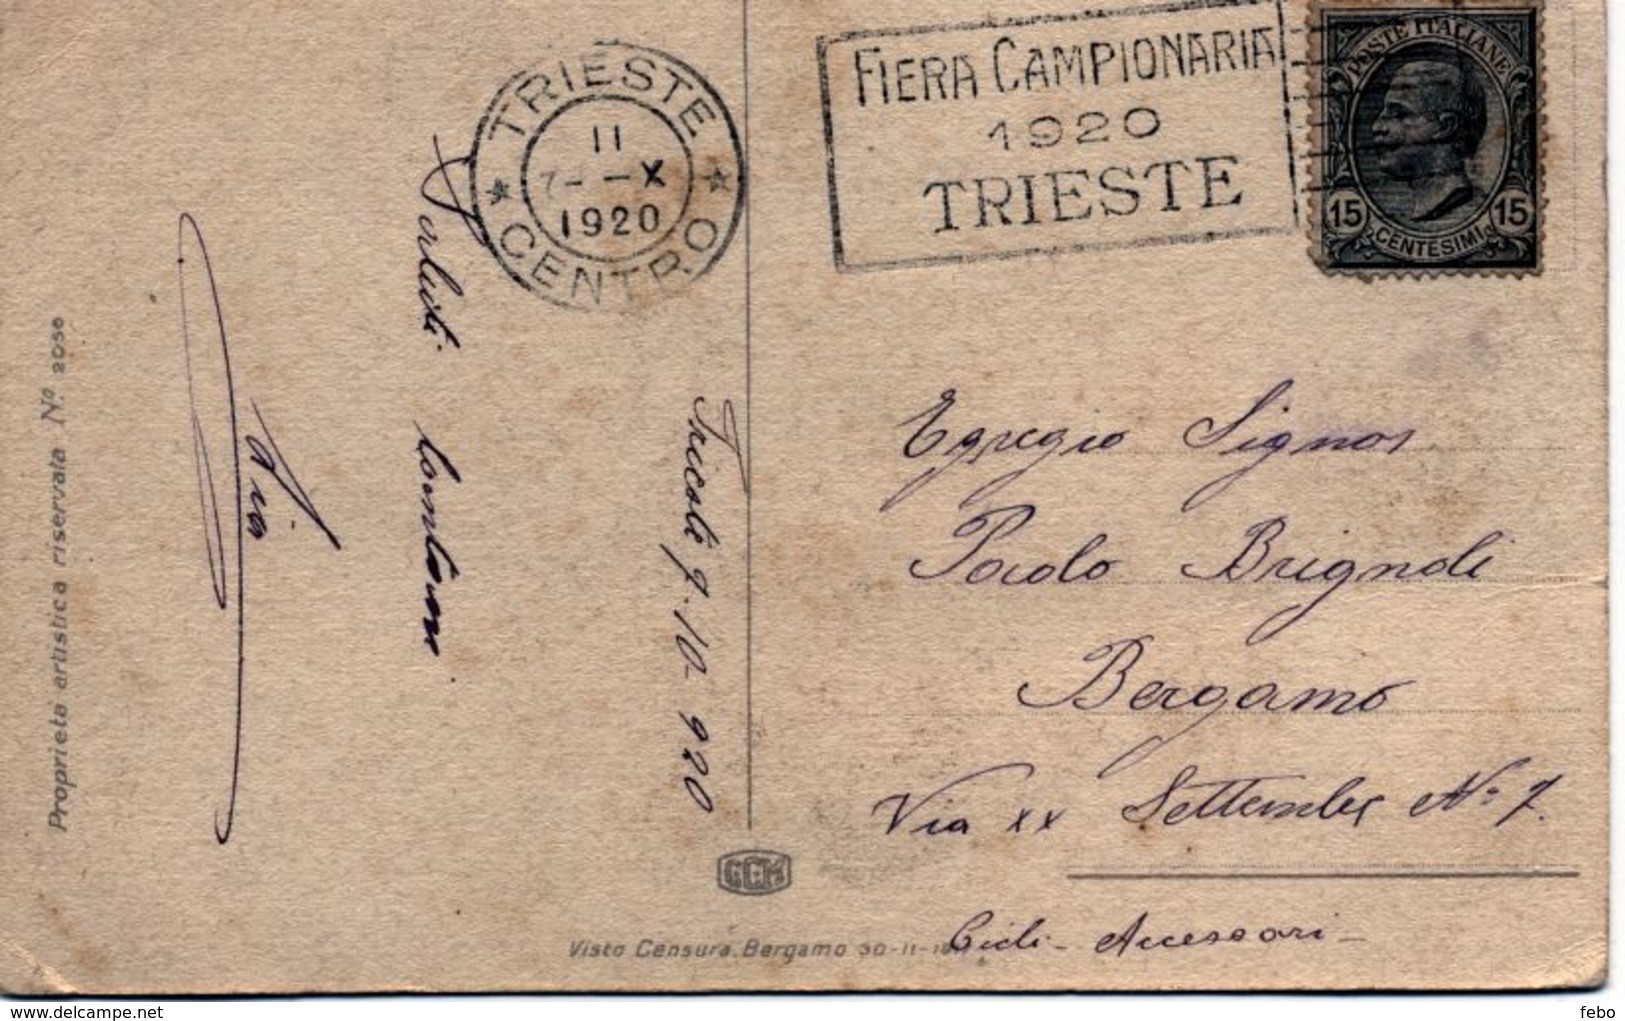 TRIESTE
CENTRO
11
7- -X
1920
FIERA CAMPIONARIA
1920
TRIESTE
POSTE ITALIANE
15 15
CENTESIMI
Egregio Signor
Paolo Brignoli
Bergamo
Via XX Settembre No 7.
Cicli - Accessori -
9-10-920
Saluti lontani
Proprietà artistica riservata No 2050
GCM
Visto Censura. Bergamo 30-11-
delcampe.net
febo